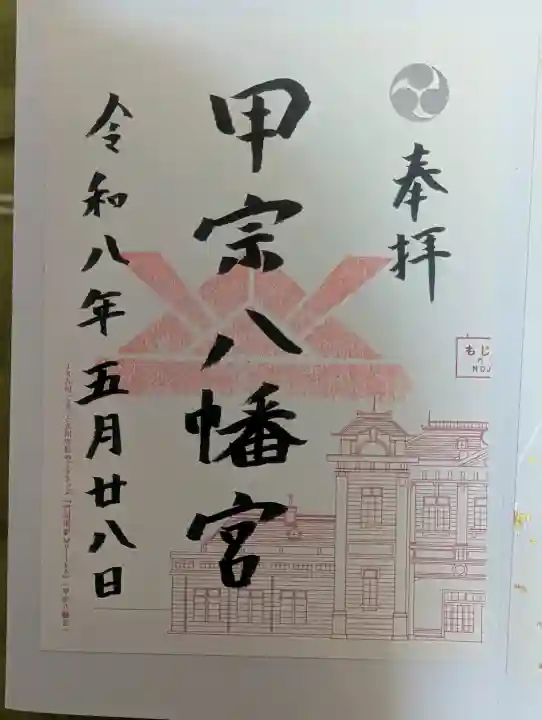 奉拝
甲宗八幡宮
令和八年五月廿八日
もじ